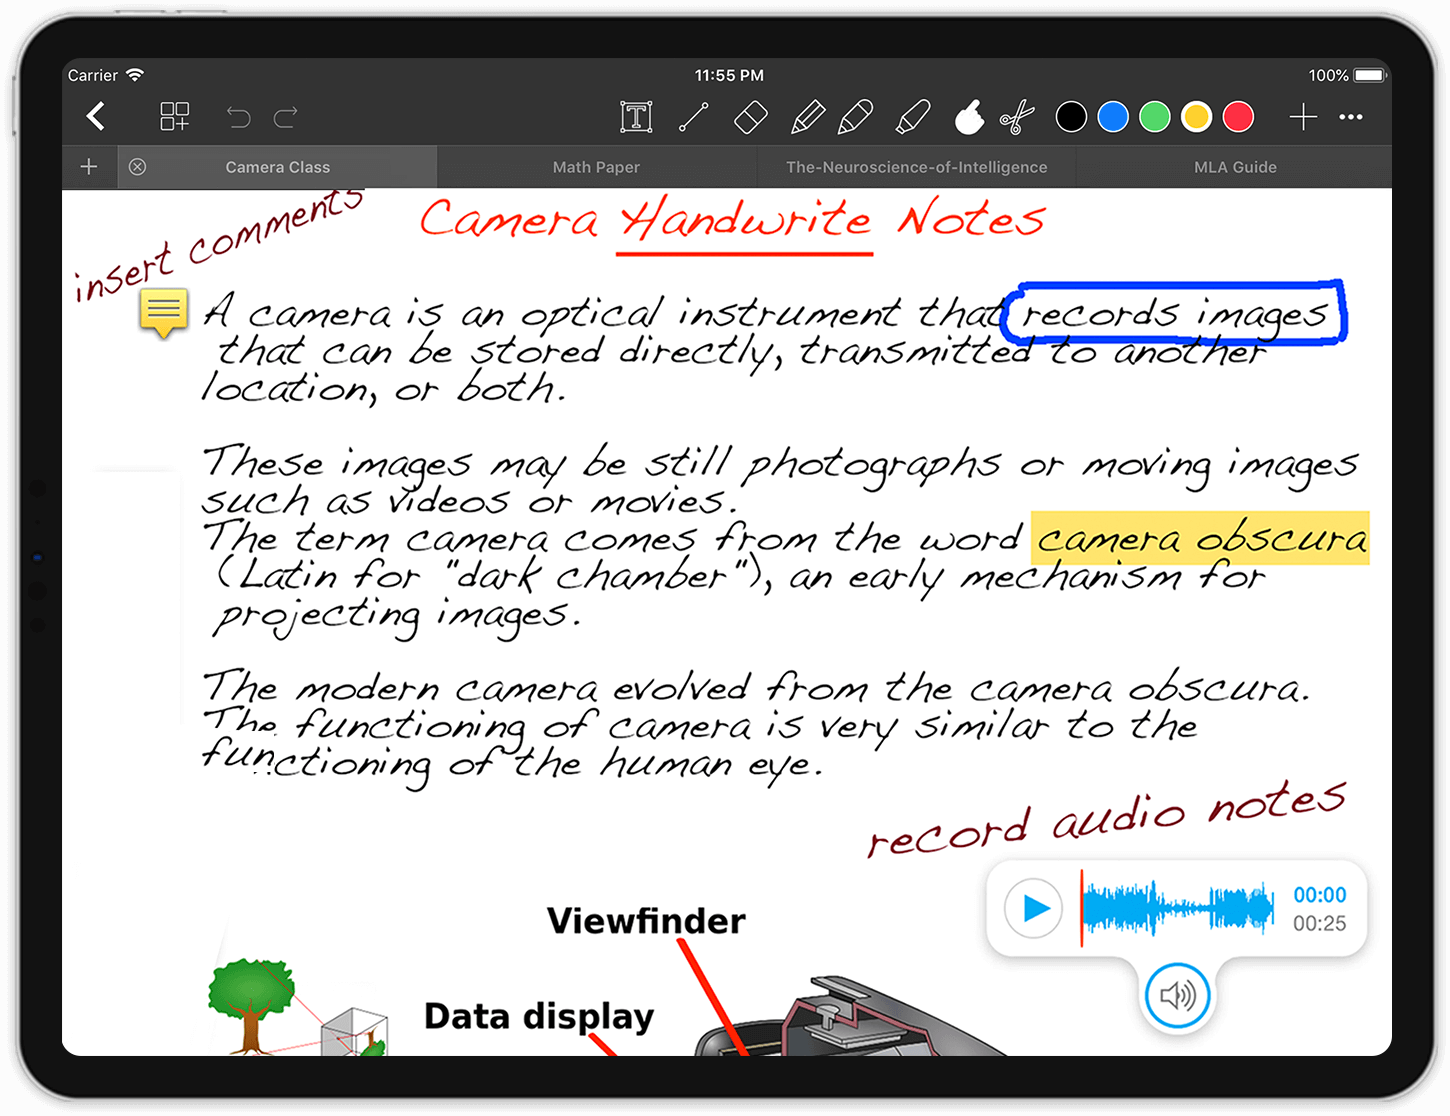 Carrier 11:55 PM 100%
T
Camera Class Math Paper The-Neuroscience-of-Intelligence MLA Guide
insert comments
Camera Handwrite Notes
A camera is an optical instrument that records images
that can be stored directly, transmitted to another
location, or both.
These images may be still photographs or moving images
such as videos or movies.
The term camera comes from the word camera obscura
(Latin for "dark chamber"), an early mechanism for
projecting images.
The modern camera evolved from the camera obscura.
The functioning of camera is very similar to the
functioning of the human eye.
record audio notes
00:00
00:25
Viewfinder
Data display